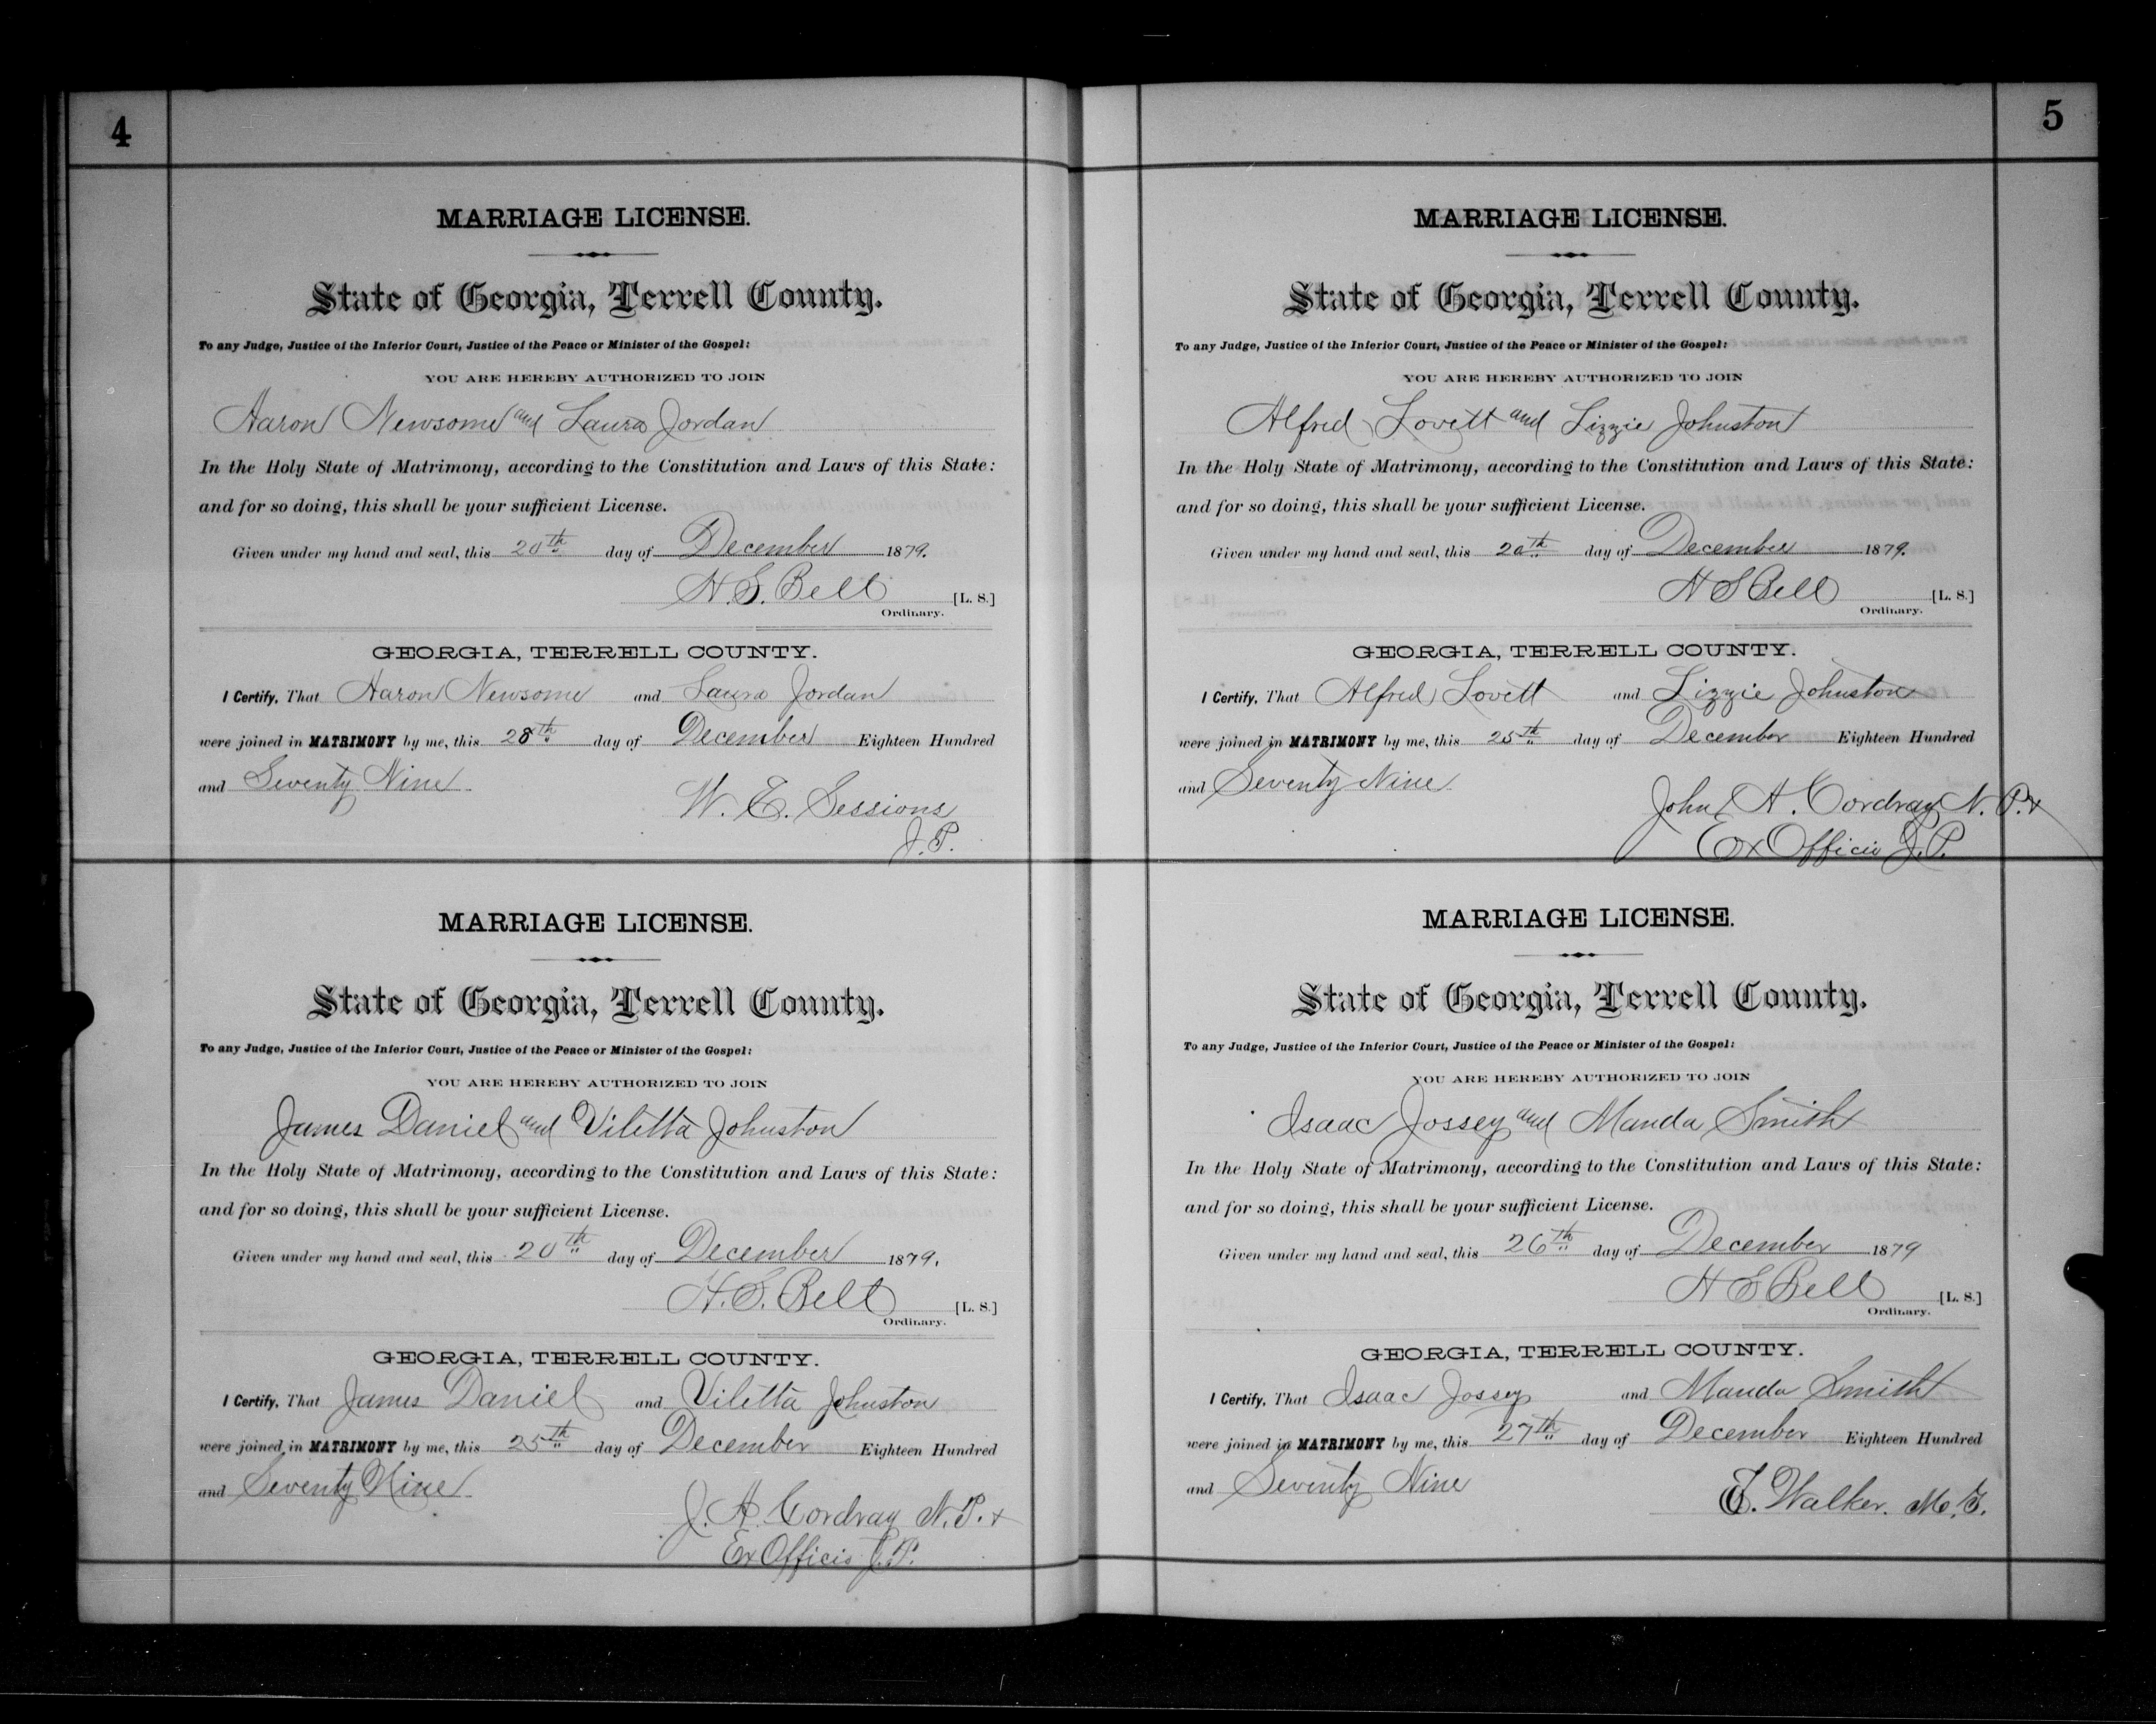 4
MARRIAGE LICENSE.
State of Georgia, Terrell County.
To any Judge, Justice of the Inferior Court, Justice of the Peace or Minister of the Gospel:
YOU ARE HEREBY AUTHORIZED TO JOIN
Aaron Newsome and Laura Jordan
In the Holy State of Matrimony, according to the Constitution and Laws of this State:
and for so doing, this shall be your sufficient License.
Given under my hand and seal, this 20th day of December 1879.
H. S. Bell [L. S.]
Ordinary.
GEORGIA, TERRELL COUNTY.
I Certify, That Aaron Newsome and Laura Jordan
were joined in MATRIMONY by me, this 28th day of December Eighteen Hundred
and Seventy Nine
W. E. Sessions
J. P.
MARRIAGE LICENSE.
State of Georgia, Terrell County.
To any Judge, Justice of the Inferior Court, Justice of the Peace or Minister of the Gospel:
YOU ARE HEREBY AUTHORIZED TO JOIN
James Daniel and Viletta Johnston
In the Holy State of Matrimony, according to the Constitution and Laws of this State:
and for so doing, this shall be your sufficient License.
Given under my hand and seal, this 20th day of December 1879.
H. S. Bell [L. S.]
Ordinary.
GEORGIA, TERRELL COUNTY.
I Certify, That James Daniel and Viletta Johnston
were joined in MATRIMONY by me, this 25th day of December Eighteen Hundred
and Seventy Nine
J. A. Cordray N. P. &
Ex Officio J. P.
5
MARRIAGE LICENSE.
State of Georgia, Terrell County.
To any Judge, Justice of the Inferior Court, Justice of the Peace or Minister of the Gospel:
YOU ARE HEREBY AUTHORIZED TO JOIN
Alfred Lovett and Lizzie Johnston
In the Holy State of Matrimony, according to the Constitution and Laws of this State:
and for so doing, this shall be your sufficient License.
Given under my hand and seal, this 20th day of December 1879.
H S Bell [L. S.]
Ordinary.
GEORGIA, TERRELL COUNTY.
I Certify, That Alfred Lovett and Lizzie Johnston
were joined in MATRIMONY by me, this 25th day of December Eighteen Hundred
and Seventy Nine
John A. Cordray N. P. &
Ex Officio J. P.
MARRIAGE LICENSE.
State of Georgia, Terrell County.
To any Judge, Justice of the Inferior Court, Justice of the Peace or Minister of the Gospel:
YOU ARE HEREBY AUTHORIZED TO JOIN
Isaac Jossey and Manda Smith
In the Holy State of Matrimony, according to the Constitution and Laws of this State:
and for so doing, this shall be your sufficient License.
Given under my hand and seal, this 26th day of December 1879
H S Bell [L. S.]
Ordinary.
GEORGIA, TERRELL COUNTY.
I Certify, That Isaac Jossey and Manda Smith
were joined in MATRIMONY by me, this 27th day of December Eighteen Hundred
and Seventy Nine
Walker. M. G.